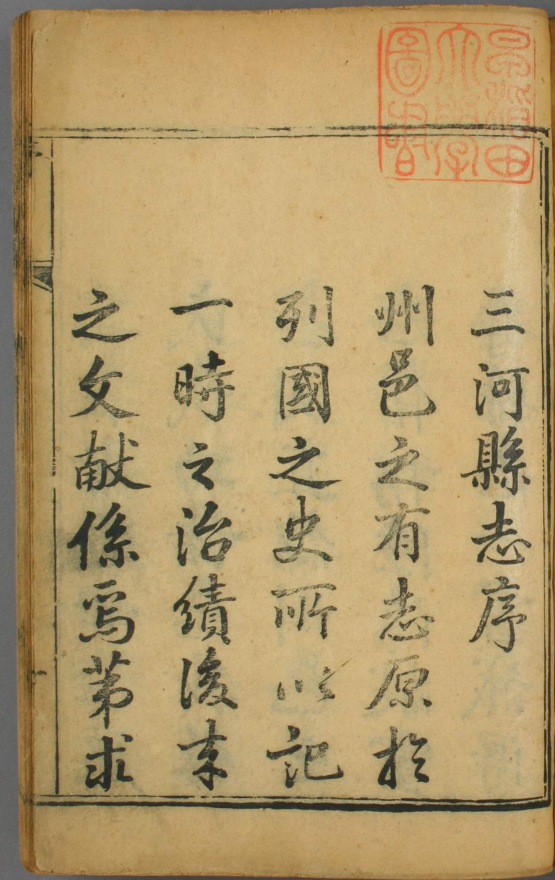 三河縣志序
州邑之有志原於
列國之史所以記
一時之治績後来
之文献係焉第求
早稲田
大學
圖書